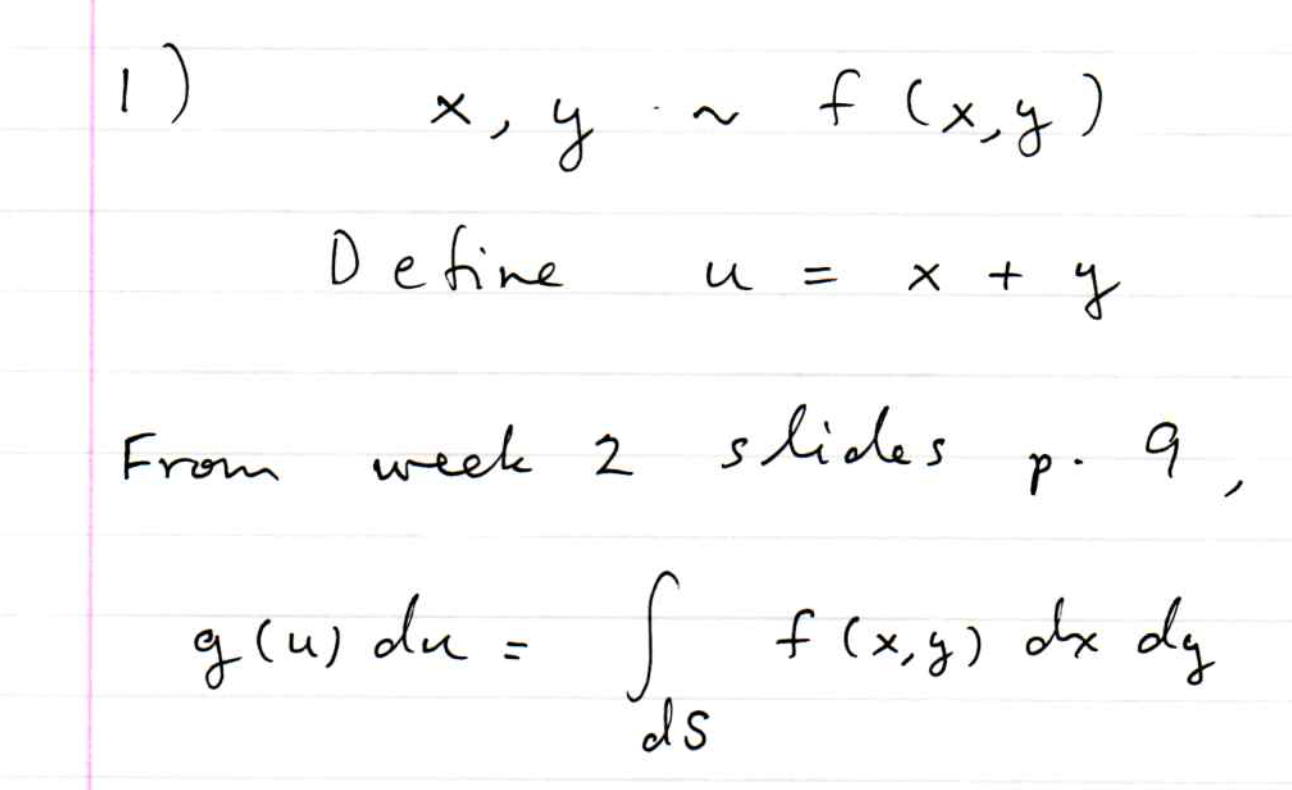 1) x, y ~ f (x,y)
Define u = x + y
From week 2 slides p. 9,
g(u) du = ∫ f (x,y) dx dy
dS